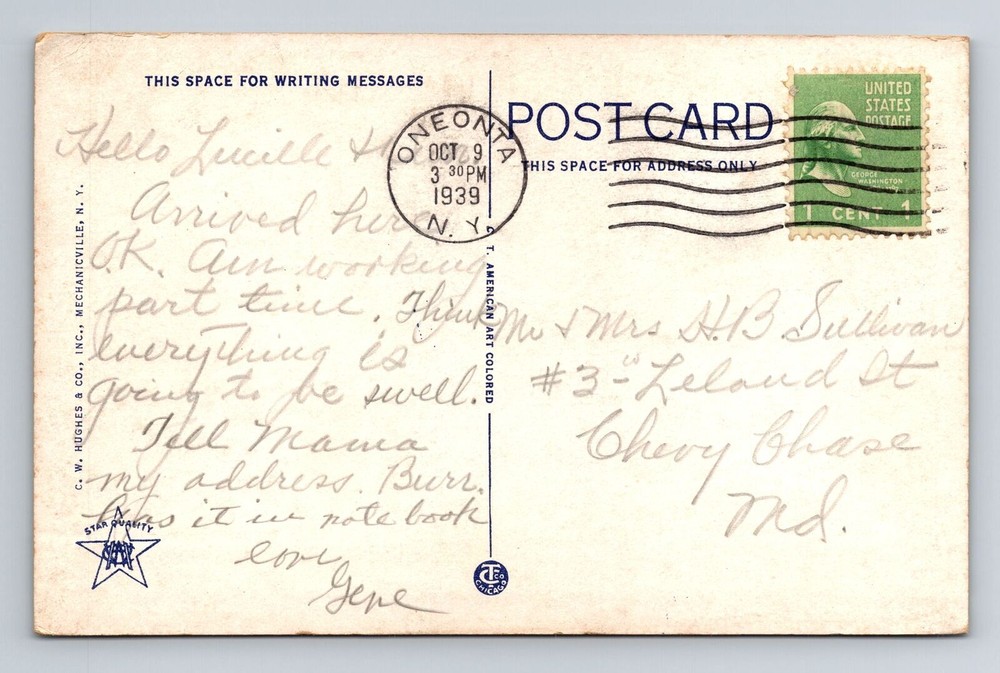 THIS SPACE FOR WRITING MESSAGES
Hello Lucille &
Arrived here
O.K. Am working
part time. Think
everything is
going to be swell.
Tell Mama
my address. Burr.
has it in note book
love
Gene
C. W. HUGHES & CO., INC., MECHANICVILLE, N. Y.
STAR QUALITY
C. T. AMERICAN ART COLORED
CTCO
CHICAGO
ONEONTA
OCT 9
3 30 PM
1939
N. Y.
POST CARD
THIS SPACE FOR ADDRESS ONLY
UNITED
STATES
POSTAGE
GEORGE
WASHINGTON
1 CENT 1
Mr & Mrs H.B Sullivan
#3 - Leland St
Chevy Chase
Md.